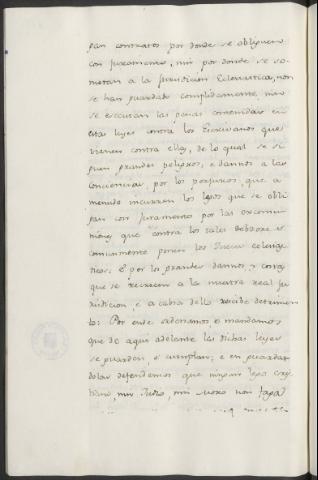 gan contratos por donde se obliguen
con juramento, nin por donde se so
metan a la Jurisdicion Eclesiastica, non
se han guardado complidamente, nin
se executan las penas contenidas en
estas leyes contra los Escrivanos que
vienen contra ellas, de lo qual se si
guen grandes peligros, e dannos a las
conciencias, por los perjuros, que a
menudo incurren los legos que se obli
gan con Juramento por las excomu
niones, que contra los tales debdores
comunmente ponen los Jueces eclesias
ticos: E por los grandes dannos, y
que se recrecen a la nuestra real Ju
risdicion, e a cabsa dello recibe detrimen
to: Por ende ordenamos e mandamos
que de aqui adelante las dichas leyes
se guarden, e cumplan; e en guardan
dolas defendemos que ningun lego cris
tiano, nin Judio, nin Moro non faga